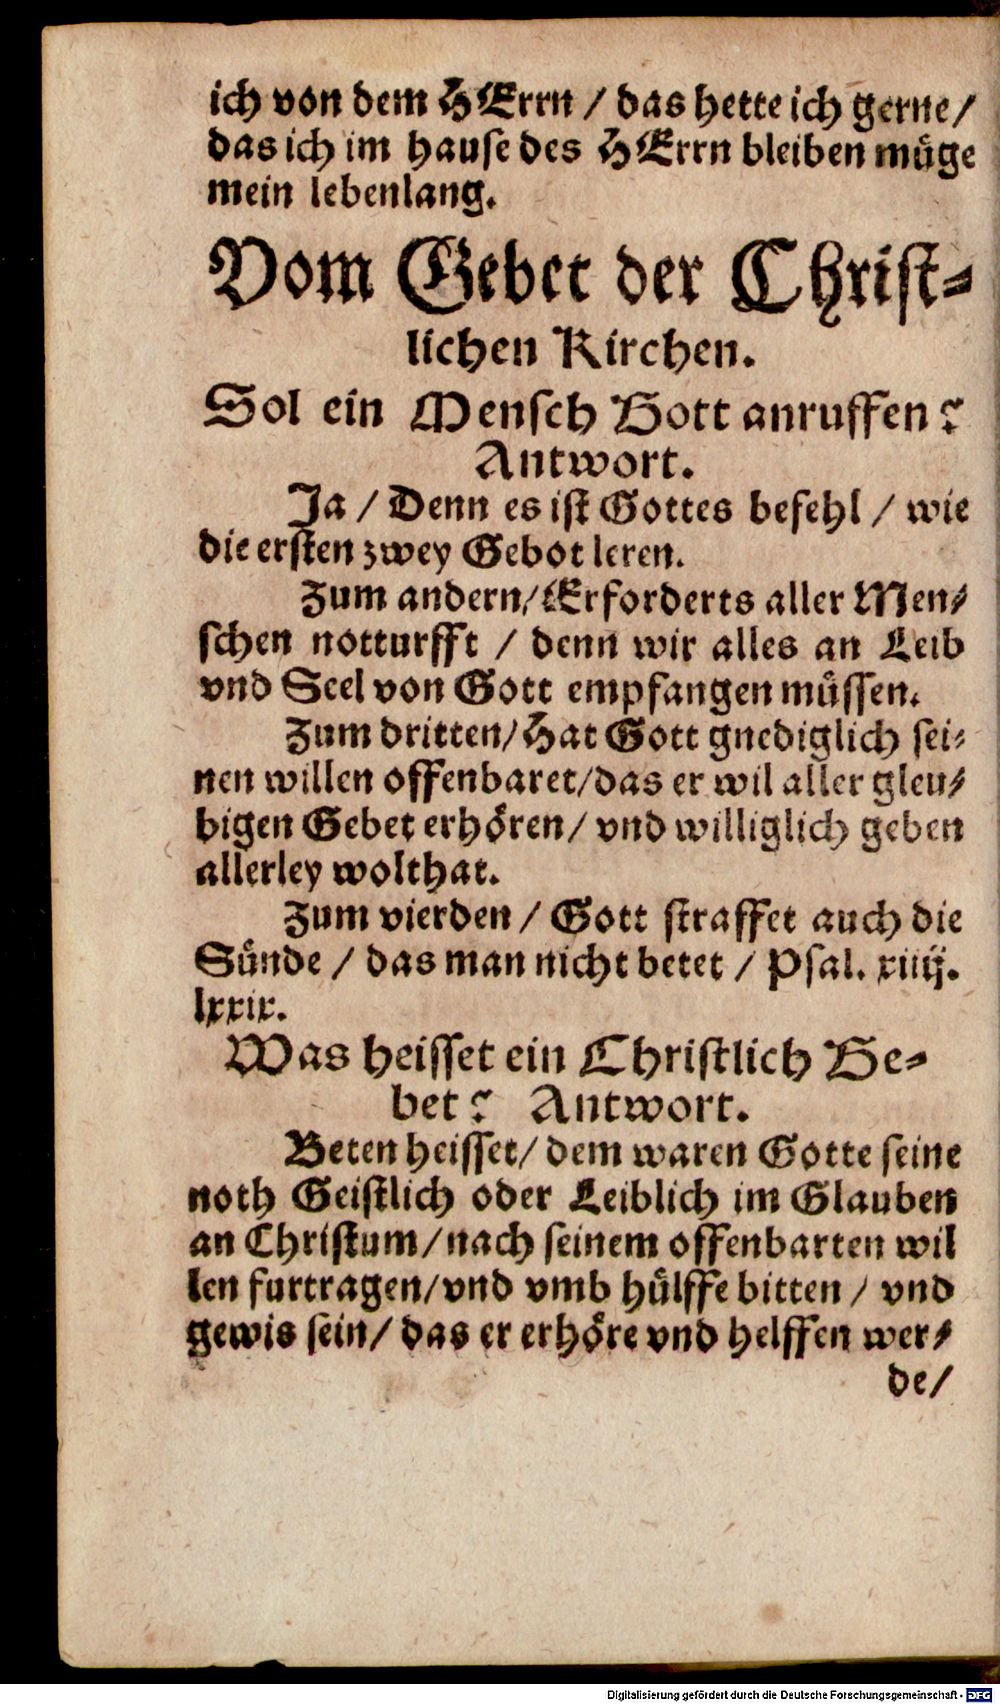 ich von dem HErrn / das hette ich gerne /
das ich im hause des HErrn bleiben müge
mein lebenlang.
Vom Gebet der Christ-
lichen Kirchen.
Sol ein Mensch Gott anruffen?
Antwort.
Ja / Denn es ist Gottes befehl / wie
die ersten zwey Gebot leren.
Zum andern / Erforderts aller Men-
schen notturfft / denn wir alles an Leib
vnd Seel von Gott empfangen müssen.
Zum dritten / Hat Gott gnediglich sei-
nen willen offenbaret / das er wil aller gleu-
bigen Gebet erhören / vnd williglich geben
allerley wolthat.
Zum vierden / Gott straffet auch die
Sünde / das man nicht betet / Psal. xiiij.
lxxix.
Was heisset ein Christlich Ge-
bet? Antwort.
Beten heisset / dem waren Gotte seine
noth Geistlich oder Leiblich im Glauben
an Christum / nach seinem offenbarten wil
len furtragen / vnd vmb hülffe bitten / vnd
gewis sein / das er erhöre vnd helffen wer-
de /
Digitalisierung gefördert durch die Deutsche Forschungsgemeinschaft - DFG